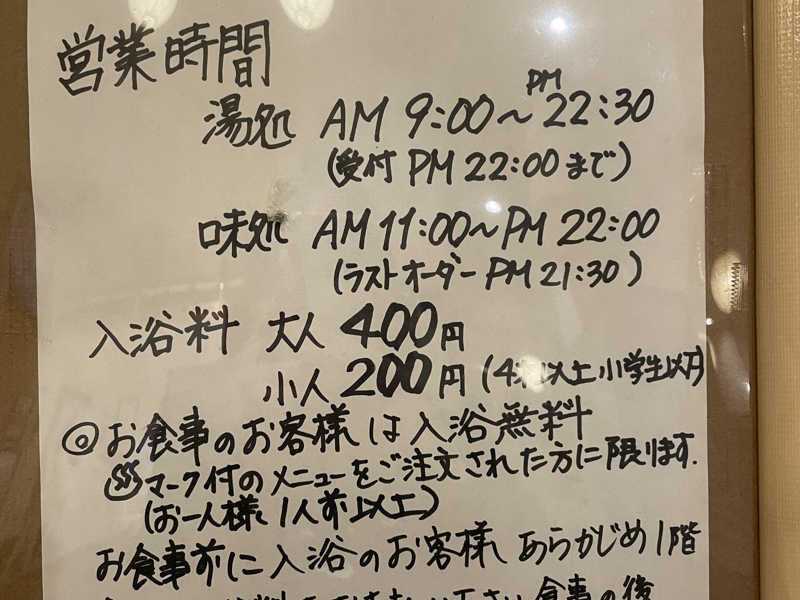 営業時間
湯処 AM 9:00～PM 22:30
(受付 PM 22:00 まで)
味処 AM 11:00～PM 22:00
(ラストオーダー PM 21:30)
入浴料 大人 400円
小人 200円 (4才以上小学生以下)
◎お食事のお客様は入浴無料
♨マーク付のメニューをご注文された方に限ります.
(お一人様 1人前以上)
お食事前に入浴のお客様 あらかじめ1階
食事の後